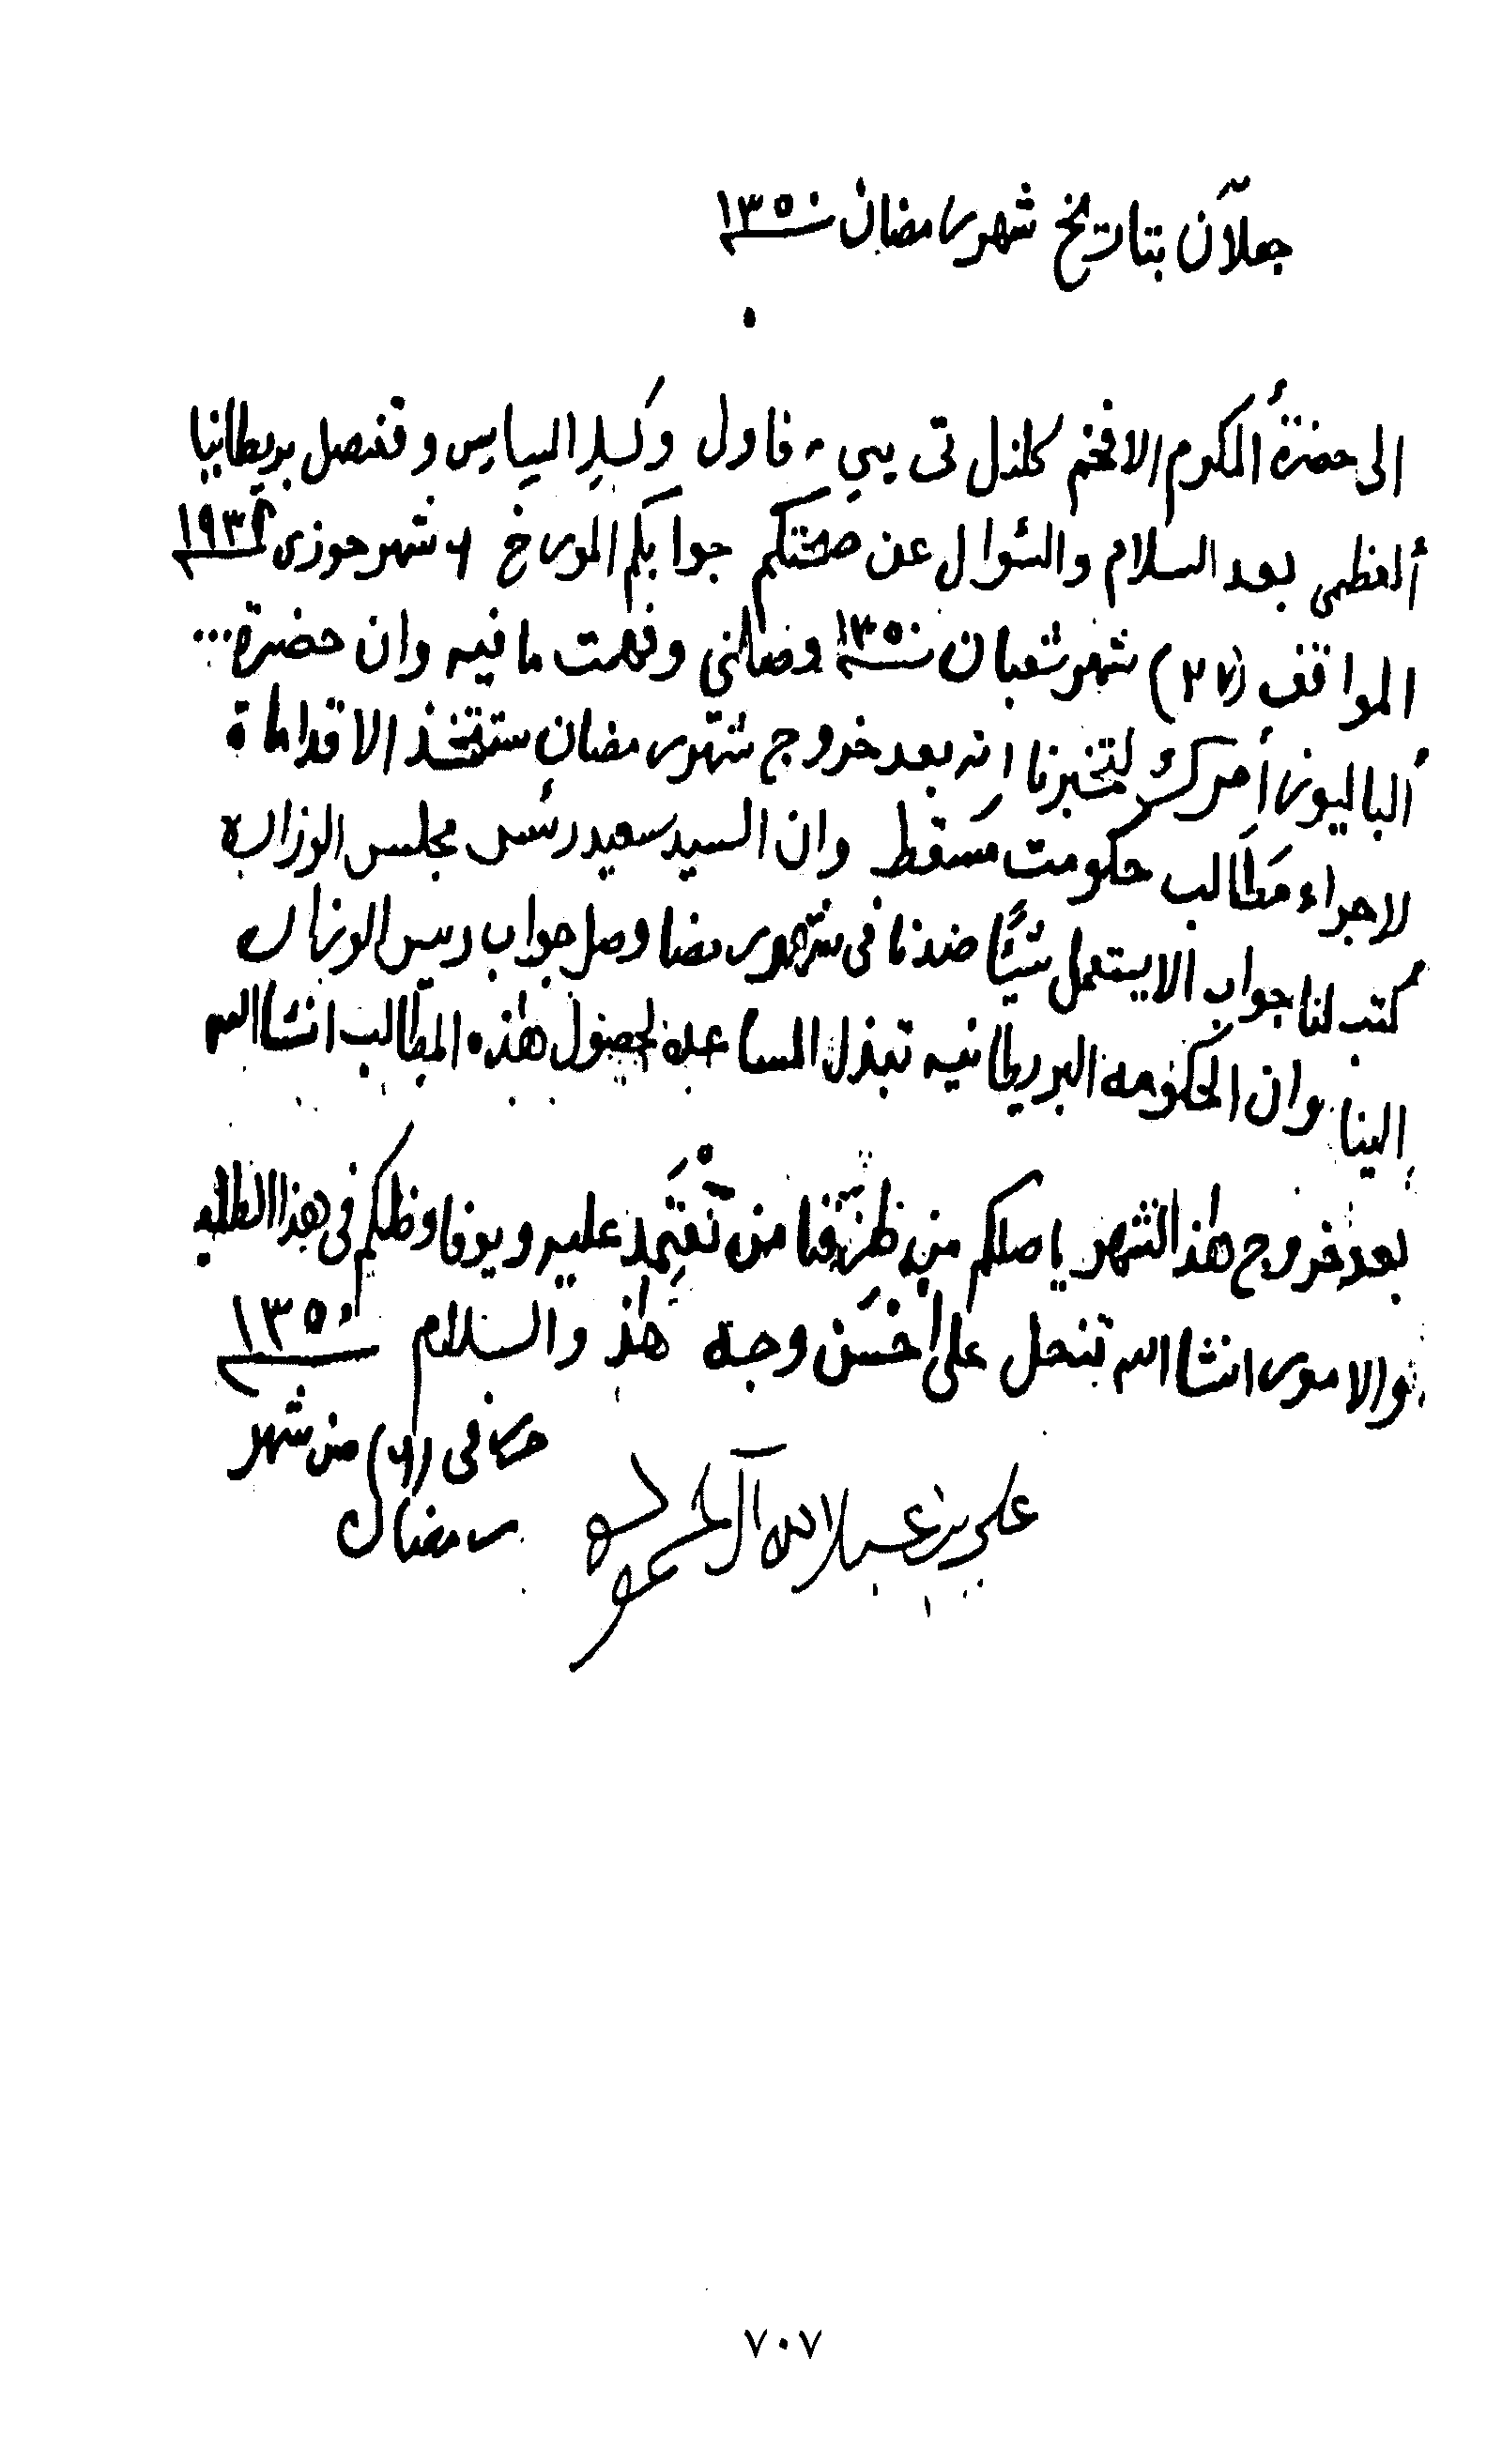 جعلآن بتاريخ شهر رمضان سنة ١٣٥٠
الى حضرة المكرم الافخم كلنل تى سي فاول وكيل السياسي وقنصل بريطانيا
ألعظمى بعد السلام والسوال عن صحتكم جوابكم المورخ ٦ شهر جنوري ١٩٣٢
الموافق (٢٧) شهر شعبان سنة ١٣٥٠ وصلني وفهمت ما فيه وان حضرة...
ألباليوز أمرك لتخبرنا انه بعد خروج شهر رمضان ستتخذ الاقداماة
لاجراء مطالب حكومت مسقط وان السيد سعيد رئس مجلس الوزاره
كتب لنا جواب الا يستعمل شيئاً ضدنا في شهر رمضا وصل جواب رييس الوزار
الينا وان الحكومه البريطانيه تبذل المساعده لحصول هذه المطالب انشاالله
بعد خروج هذ الشهر ياصلكم من طرفنا من نعتمد عليه ويوفاوظكم في هذا الطلب
والامور انشاالله تنحل على أحسن وجه هذ والسلام ١٣٥٠
حرر في (٦) من شهر
رمضان
علي بن عبدالله آل حموده
٧٠٧